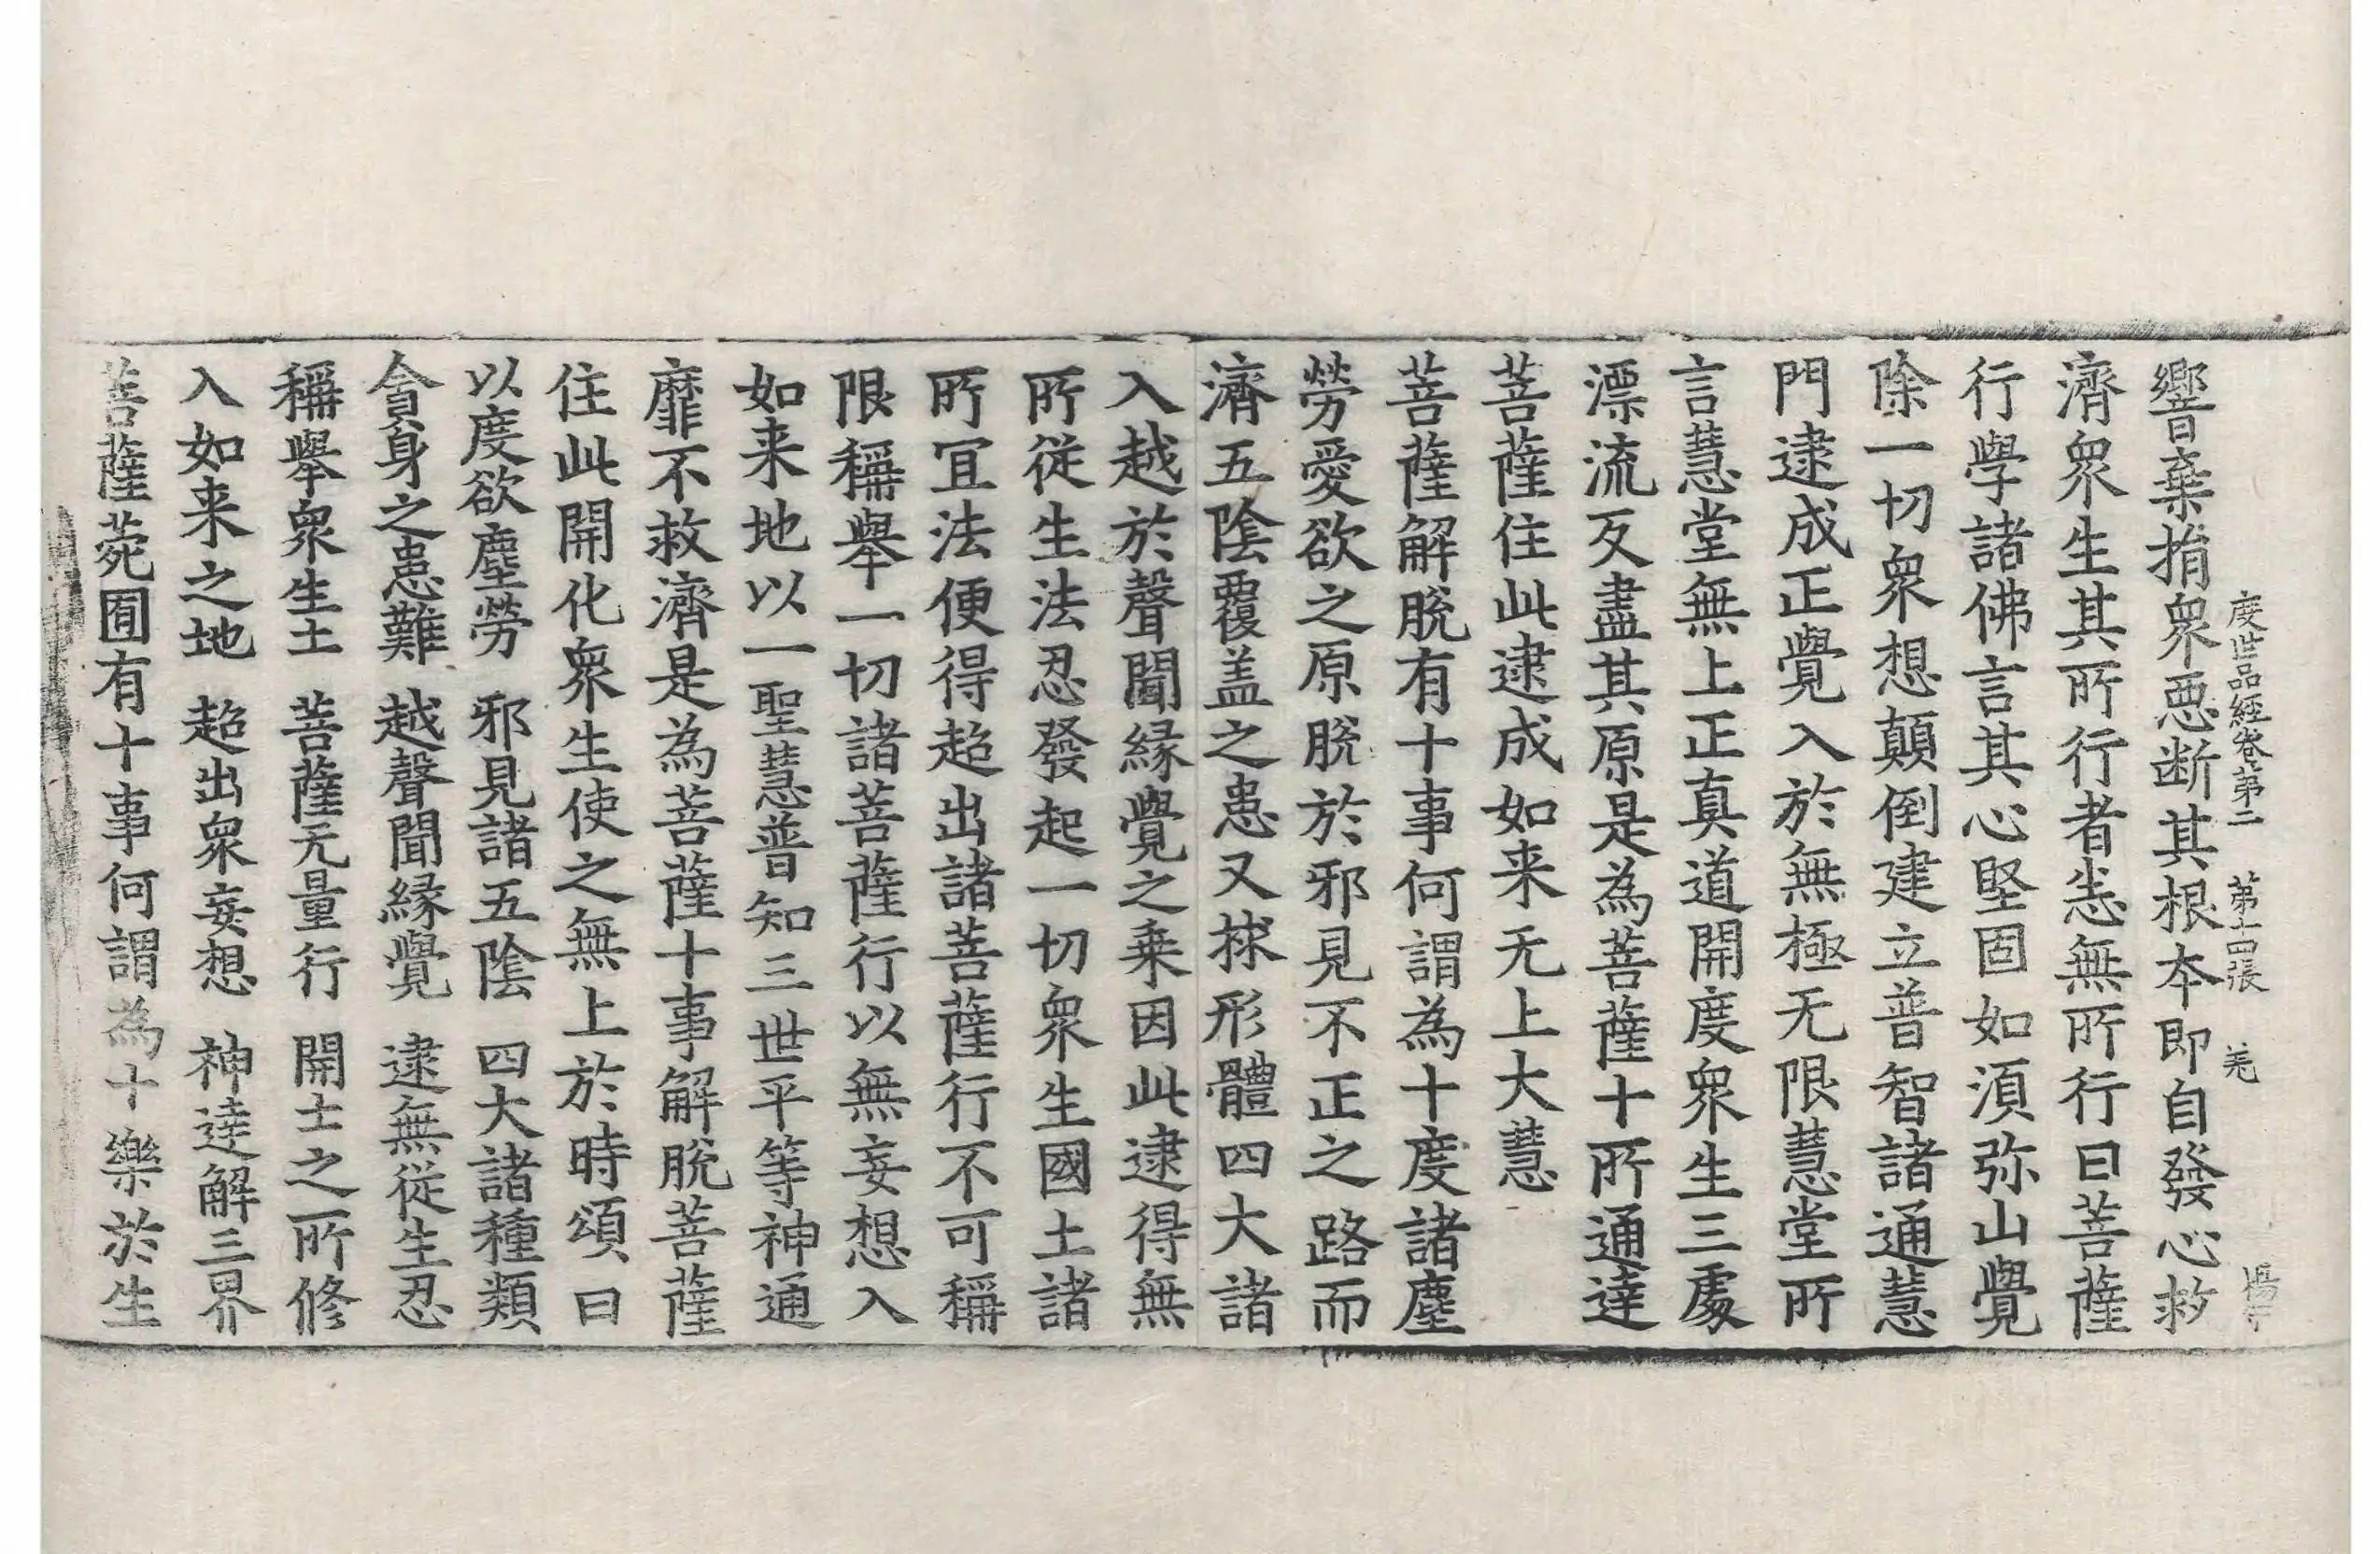 度世品經卷第二　第十四張　羌
響棄捐衆悪断其根本即自發心救
濟衆生其所行者悉無所行曰菩薩
行學諸佛言其心堅固如湏弥山覺
除一切衆想顛倒建立普智諸通慧
門逮成正覺入於無極无限慧堂所
言慧堂無上正真道開度衆生三處
漂流歹盡其原是為菩薩十所通達
菩薩住此逮成如来无上大慧
菩薩解脫有十事何謂為十度諸塵
勞愛欲之原脫於邪見不正之路而
濟五陰覆盖之患又捄形體四大諸
入越於聲聞縁覺之乗因此逮得無
所從生法忍發起一切衆生國土諸
所冝法便得超出諸菩薩行不可稱
限稱舉一切諸菩薩行以無妄想入
如来地以一聖慧普知三世平等神通
靡不救濟是為菩薩十事解脫菩薩
住此開化衆生使之無上於時頌曰
以度欲塵勞　邪見諸五陰　四大諸種類
貪身之患難　越聲聞縁覺　逮無從生忍
稱舉衆生土　菩薩无量行　開士之所修
入如来之地　超出衆妄想　神達解三界
菩薩菀囿有十事何謂為十樂於生